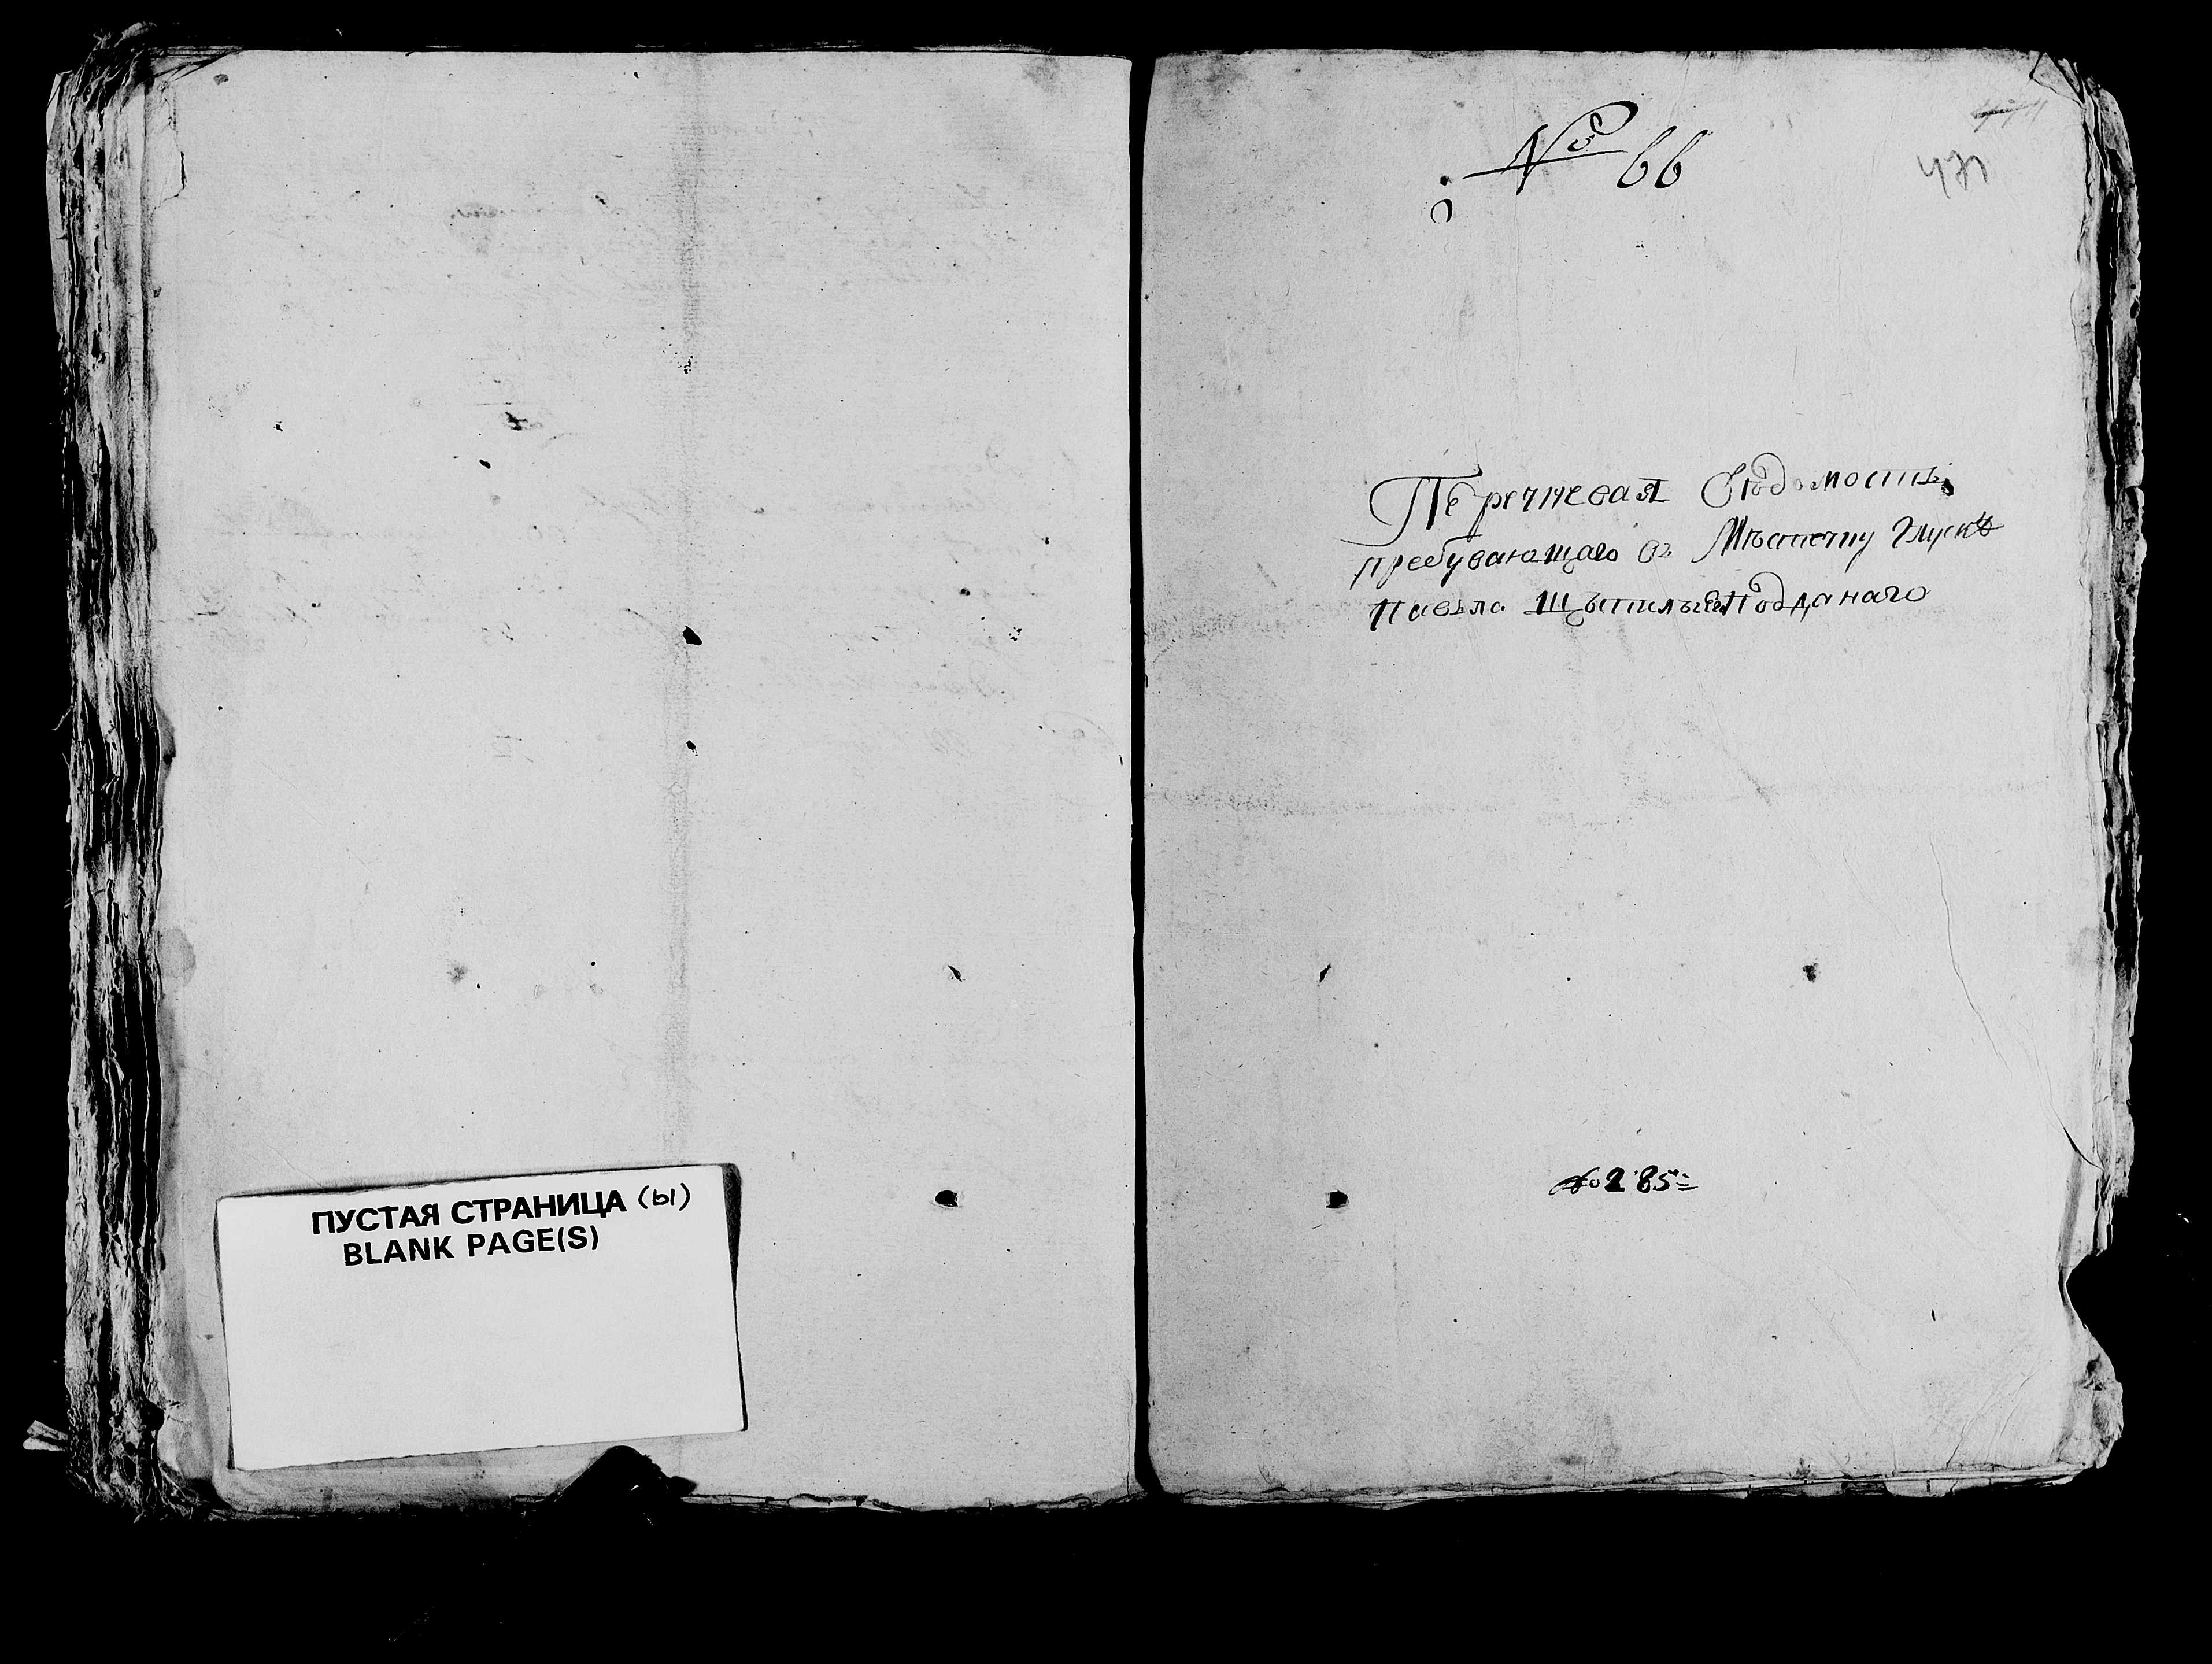 ПУСТАЯ СТРАНИЦА (ы)
BLANK PAGE(S)
No 66
471
Перечневая Вѣдомость
пребувающаго въ Мѣстечку Глускѣ
Павьла Подданаго
No 285